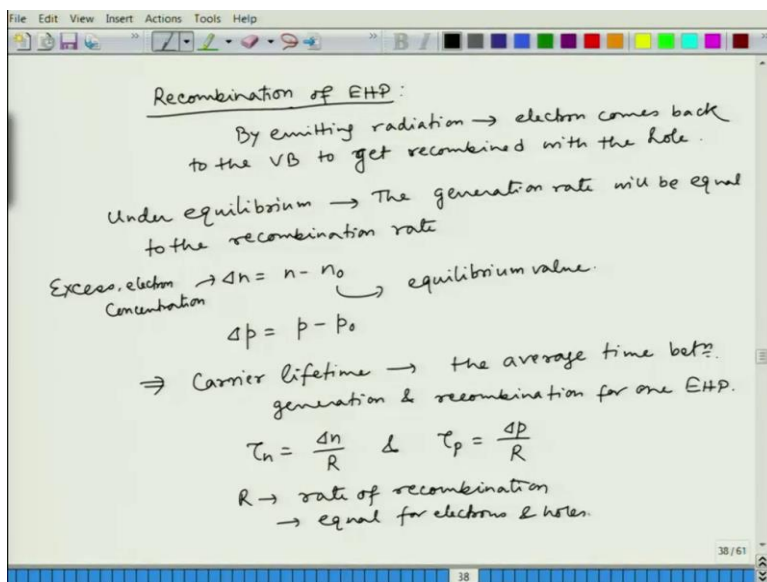 File Edit View Insert Actions Tools Help
B I
Recombination of EHP:
By emitting radiation → electron comes back
to the VB to get recombined with the hole.
Under equilibrium → The generation rate will be equal
to the recombination rate
Excess, electron → Δn = n - n₀ → equilibrium value.
Concentration
Δp = p - p₀
⇒ Carrier lifetime → the average time betⁿ.
generation & recombination for one EHP.
τₙ = Δn/R & τₚ = Δp/R
R → rate of recombination
→ equal for electrons & holes.
38/61
38